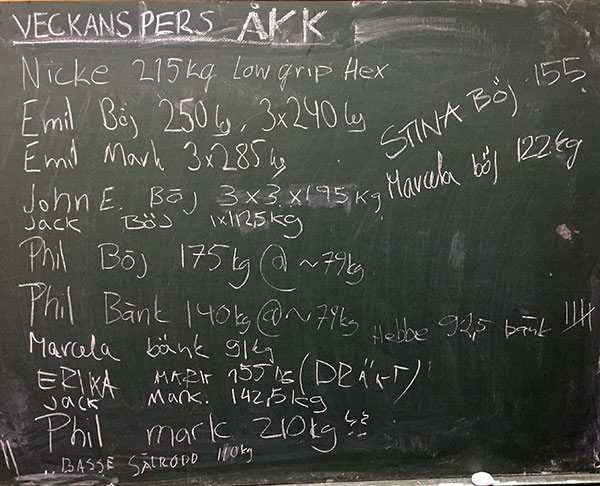 VECKANS PERS ÅKK
Nicke 215kg Low grip Hex
Emil Böj 250kg, 3x240kg
Emil Mark 3x285kg
STINA BÖJ 155
Marcela böj 122kg
John E. Böj 3x3x195kg
Jack Böj 1x112,5kg
Phil Böj 175kg @ ~79kg
Phil Bänk 140kg @ ~79kg
Hebbe 92,5 bänk
Marcela bänk 91kg
ERIKA MARK 155kg (DRÄKT)
Jack Mark. 142,5kg
Phil mark 210kg
BASSE 110kg